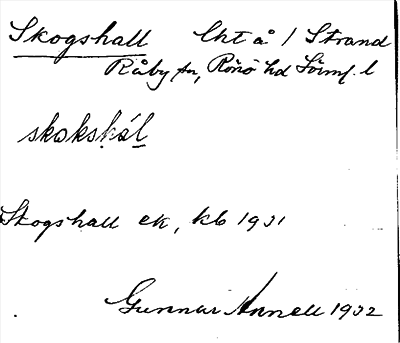 Skogshall lht å / Strand
Råby sn, Rönö hd Sörml. l
skɷkskál
Skogshall ek, kb 1931
Gunnar Annell 1932